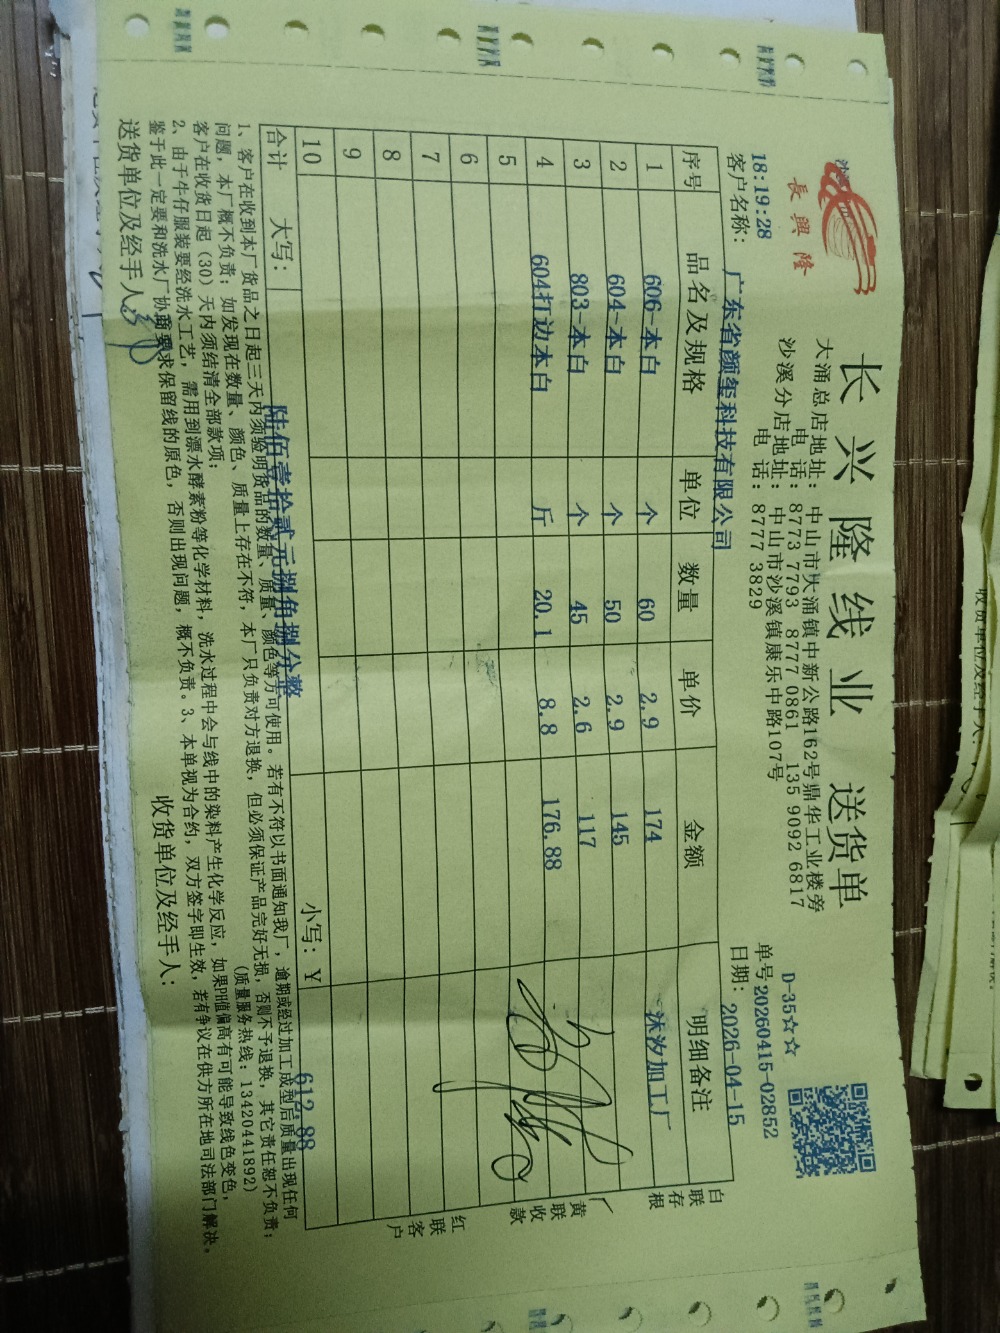 長興隆
长兴隆线业 送货单
大涌总店地址: 中山市大涌镇中新公路162号鼎华工业楼旁
电 话: 8773 7793 8777 0861 135 9092 6817
沙溪分店地址: 中山市沙溪镇康乐中路107号
电 话: 8777 3829
D-35☆☆
单号 20260415-02852
日期: 2026-04-15
18:19:28
客户名称: 广东省颜玺科技有限公司
序号 品名及规格 单位 数量 单价 金额 明细备注
1 606-本白 个 60 2.9 174 沐汐加工厂
2 604-本白 个 50 2.9 145
3 803-本白 个 45 2.6 117
4 604打边本白 斤 20.1 8.8 176.88
5
6
7
8
9
10
合计 大写: 陆佰壹拾贰元捌佰捌分整 小写: ¥ 612.88
白联存根
黄联收款
红联客户
1、客户在收到本厂货品之日起三天内须验明货品的数量、质量、颜色等方可使用。若有不符以书面通知我厂,逾期或经过加工成型后质量出现任何
问题,本厂概不负责;如发现在数量、颜色、质量上存在不符,本厂只负责对方退换,但必须保证产品完好无损,否则不予退换,其它责任恕不负责;
客户在收货日起(30)天内须结清全部款项; (质量服务热线:13420441892)
2、由于牛仔服装要经洗水工艺,需用到漂水酵素粉等化学材料,洗水过程中会与线中的染料产生化学反应,如果PH值偏高有可能导致线色变色,
鉴于此一定要和洗水厂协商要求保留线的原色,否则出现问题,概不负责。3、本单视为合约,双方签字即生效,若有争议在供方所在地司法部门解决。
送货单位及经手人:
收货单位及经手人:
收货单位及经手人: